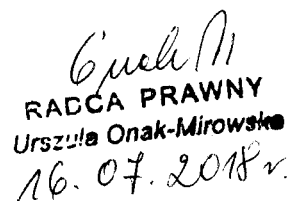 RADCA PRAWNY
Urszula Onak-Mirowska
16. 07. 2018 r.